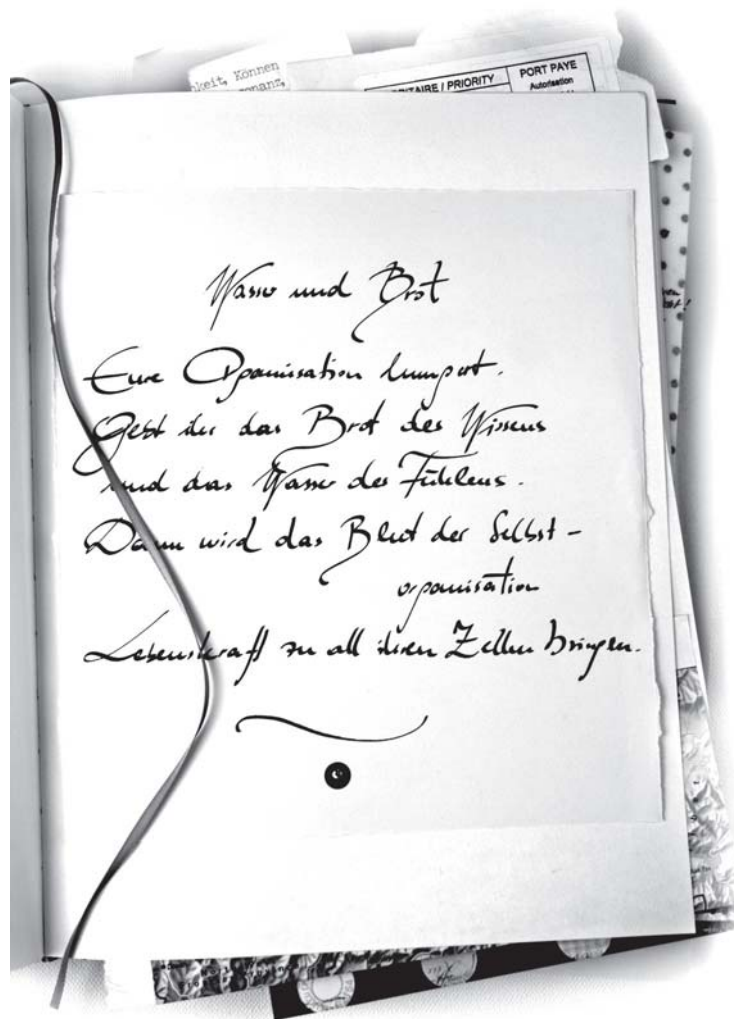 keit, Können
onanz,
RITAIRE / PRIORITY
PORT PAYE
Autorisation
Wasser und Brot
Eure Organisation hungert.
Gebt ihr das Brot des Wissens
und das Wasser des Fühlens.
Dann wird das Blut der Selbst-
organisation
Lebenskraft zu all ihren Zellen bringen.